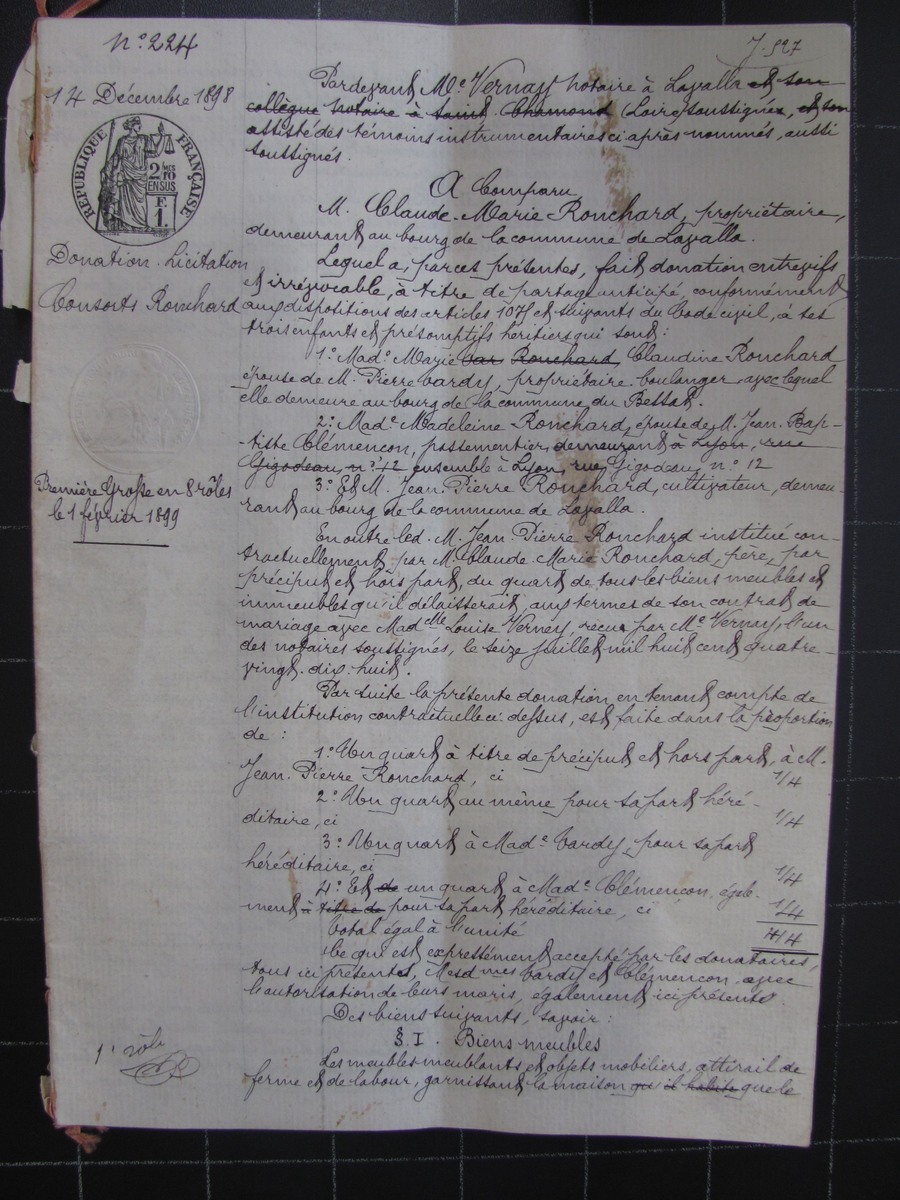 N° 224
J. 527
14 Décembre 1898
RÉPUBLIQUE FRANÇAISE
2/10mes
EN SUS
F.
1
Donation. Licitation
Consorts Ronchard
Première Grosse en 8 rôles
le 1 février 1899
Pardevant Me Vernay notaire à Lavalla et son
collègue notaire à Saint Chamond (Loire) soussignés, et son
assisté des témoins instrumentaires ci après nommés, aussi
soussignés.
A Comparu
M. Claude-Marie Ronchard, propriétaire,
demeurant au bourg de la commune de Lavalla.
Lequel a, par ces présentes, fait donation entrevifs
et irrévocable, à titre de partage anticipé, conformément
aux dispositions des articles 1075 et suivants du Code civil, à ses
trois enfants et présomptifs héritiers qui sont:
1° Made Marie Ronchard, Claudine Ronchard
épouse de M. Pierre Vardy, propriétaire boulanger avec lequel
elle demeure au bourg de la commune du Bessat.
2° Made Madeleine Ronchard, épouse de M. Jean-Bap-
tiste Clémençon, passementier, demeurant à Lyon, rue
Gigodeau, n° 12 ensemble à Lyon, rue Gigodeau, n° 12
3° Et M. Jean-Pierre Ronchard, cultivateur, demeu-
rant au bourg de la commune de Lavalla.
En outre led. M. Jean-Pierre Ronchard institué con-
tractuellement par M. Claude Marie Ronchard, père, par
préciput et hors part, du quart de tous les biens meubles et
immeubles qu'il délaisserait, aux termes de son contrat de
mariage avec Madelle Louise Verney, recu par Me Vernay, l'un
des notaires soussignés, le seize juillet mil huit cent quatre-
vingt-dix-huit.
Par suite la présente donation en tenant compte de
l'institution contractuelle ci dessus, est faite dans la proportion
de :
1° Un quart à titre de préciput et hors part, à M.
Jean-Pierre Ronchard, ci 1/4
2° Un quart au même pour sa part héré-
ditaire, ci 1/4
3° Un quart à Made Vardy, pour sa part
héréditaire, ci 1/4
4° Et de un quart à Made Clémençon, égale-
ment à titre de pour sa part héréditaire, ci 1/4
Total égal à l'unité 4/4
Ce qui est expressément accepté par les donataires,
tous ici présents, Mesdmes Vardy et Clémençon avec
l'autorisation de leurs maris, également ici présents.
Des biens suivants, savoir :
§. I. Biens meubles
Les meubles meublants, et objets mobiliers, attirail de
ferme et de labour, garnissant la maison qu'il habite que le
1r rôle